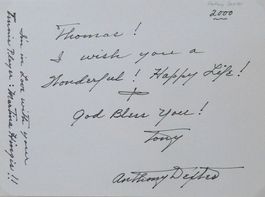 2000
Thomas!
I wish you a
Wonderful! Happy Life!
&
God Bless You!
Tony
Anthony
I'm in Love with your
Tennis Player: Martina Hingis!!